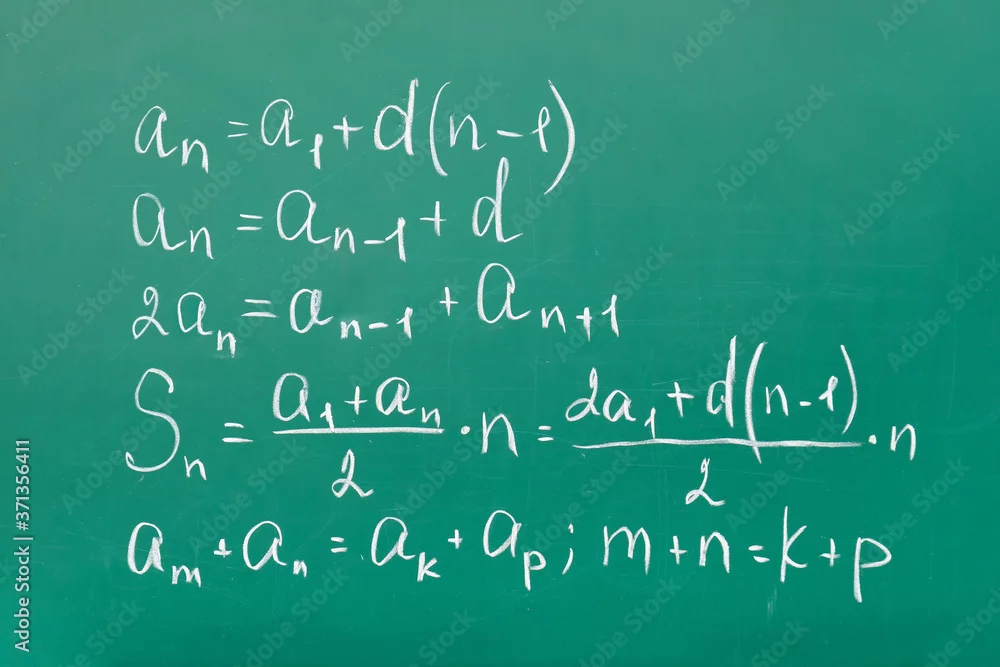 aₙ = a₁ + d(n-1)
aₙ = aₙ₋₁ + d
2aₙ = aₙ₋₁ + aₙ₊₁
Sₙ = (a₁ + aₙ)/2 · n = (2a₁ + d(n-1))/2 · n
aₘ + aₙ = aₖ + aₚ; m + n = k + p
Adobe Stock | #371356411